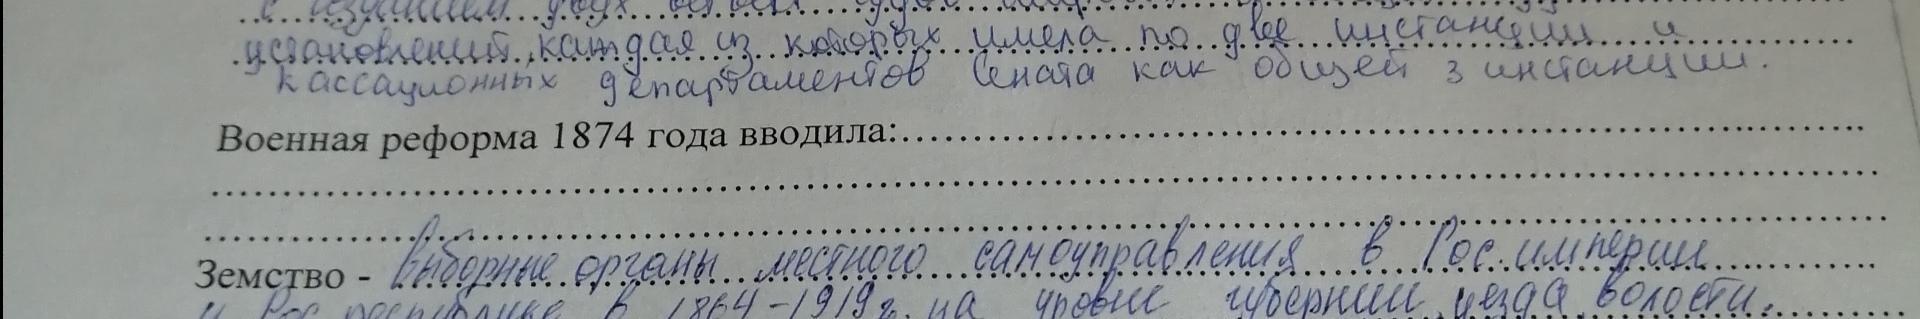 с созданием двух
установлений, каждая из которых имела по две инстанции и
кассационных департаментов Сената как общей 3 инстанции.
Военная реформа 1874 года вводила:
Земство - Выборные органы местного самоуправления в Рос. империи
и Рос. республике в 1864-1919г. на уровне губернии, уезда, волости.